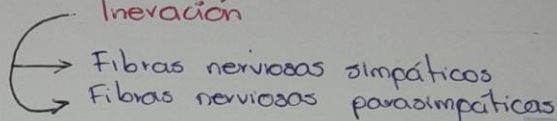 Inervación
Fibras nerviosas simpáticos
Fibras nerviosas parasimpáticas